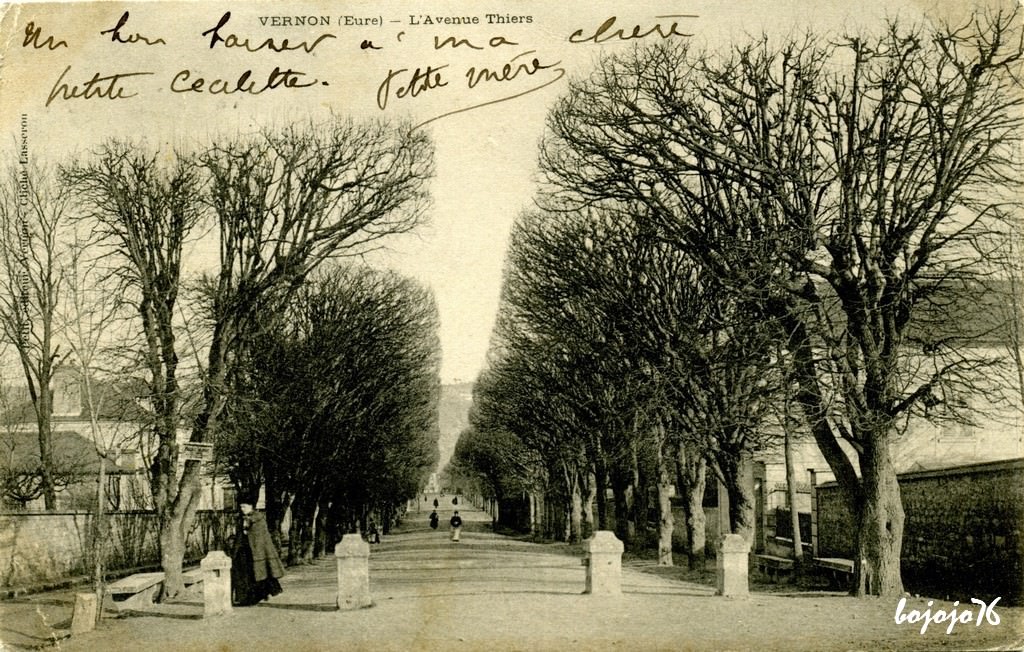 VERNON (Eure) — L'Avenue Thiers
Un bon baiser à ma chère
petite Cécilette. Petite mère
Cliché Lasseron
bojojo76